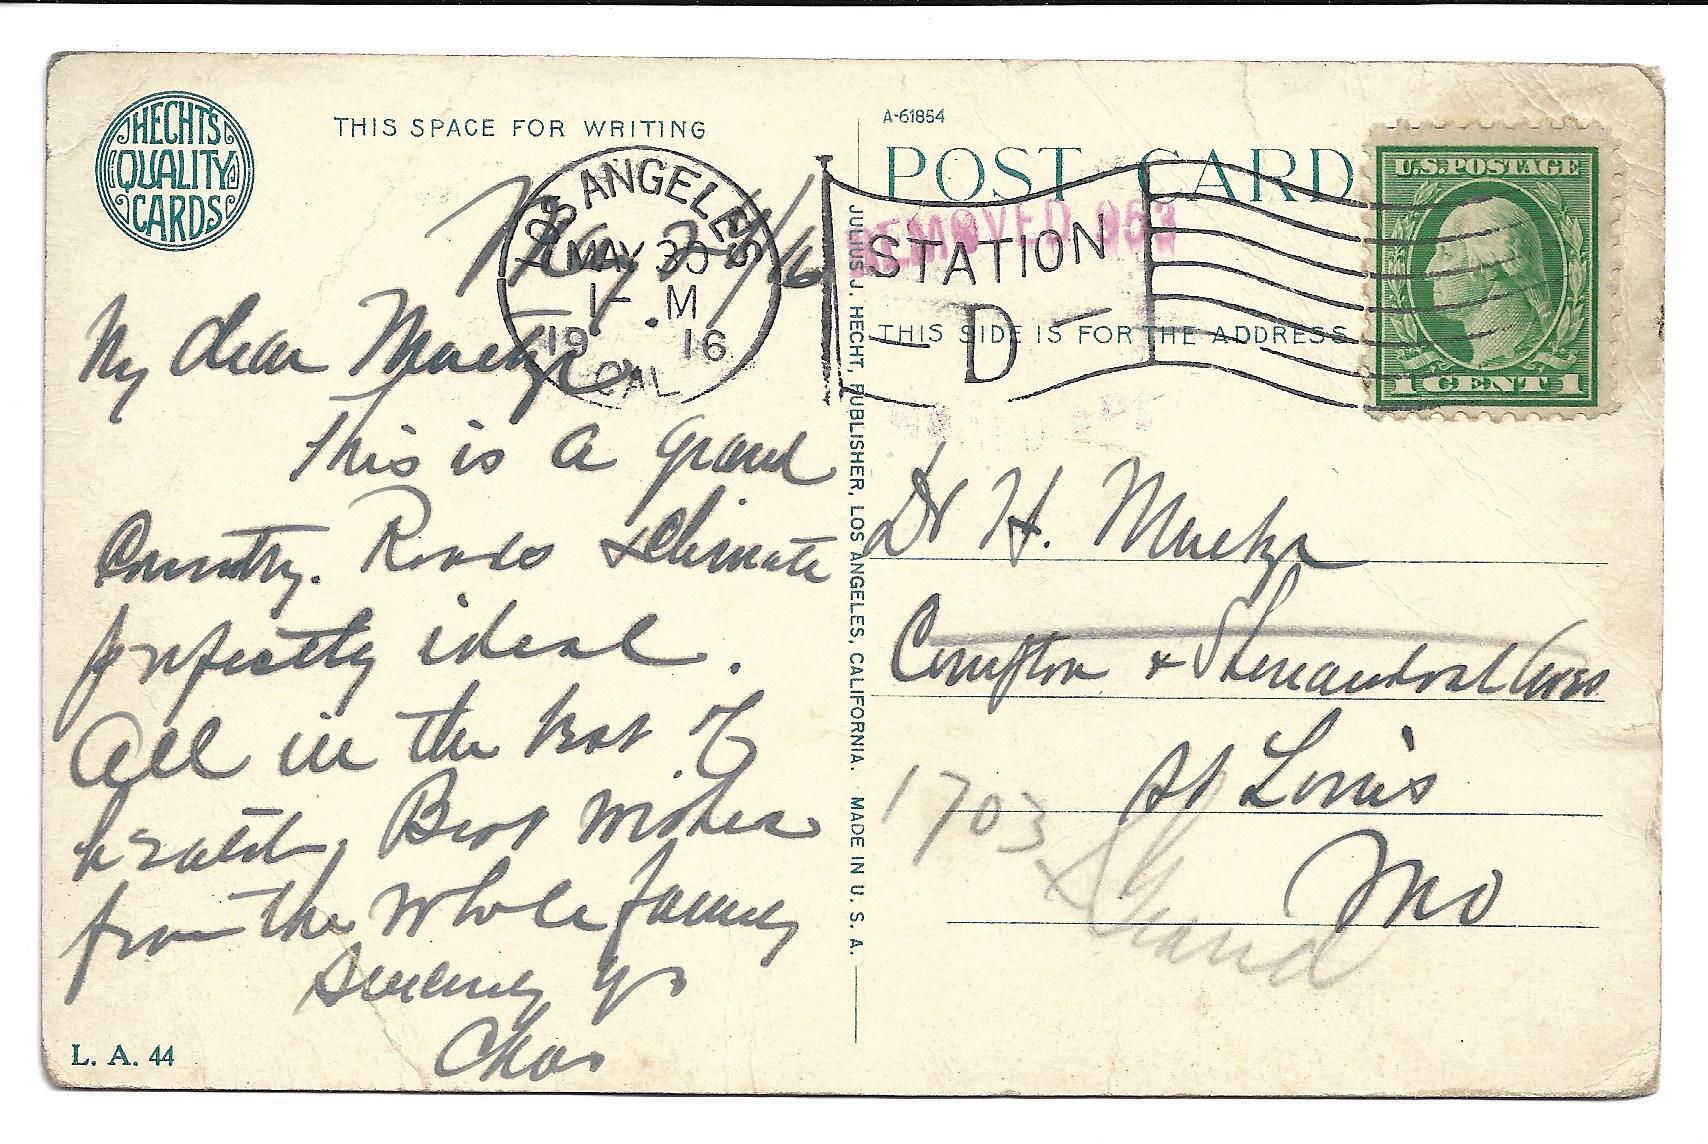 HECHT'S
QUALITY
CARDS
THIS SPACE FOR WRITING
A-61854
POST CARD
LOS ANGELES
MAY 30
1 - M
1916
CAL
REMOVED 953
STATION
D
U.S. POSTAGE
1 CENT 1
THIS SIDE IS FOR THE ADDRESS
JULIUS J. HECHT, PUBLISHER, LOS ANGELES, CALIFORNIA. MADE IN U. S. A.
May /16
My dear
This is a grand
Country. Roads & Climate
perfectly ideal.
All in the best of
health, Best wishes
from the whole family
Sincerely yrs
Chas
L. A. 44
Dr H.
Compton & Shenandoah Aves
St Louis
Mo
1703
S Grand